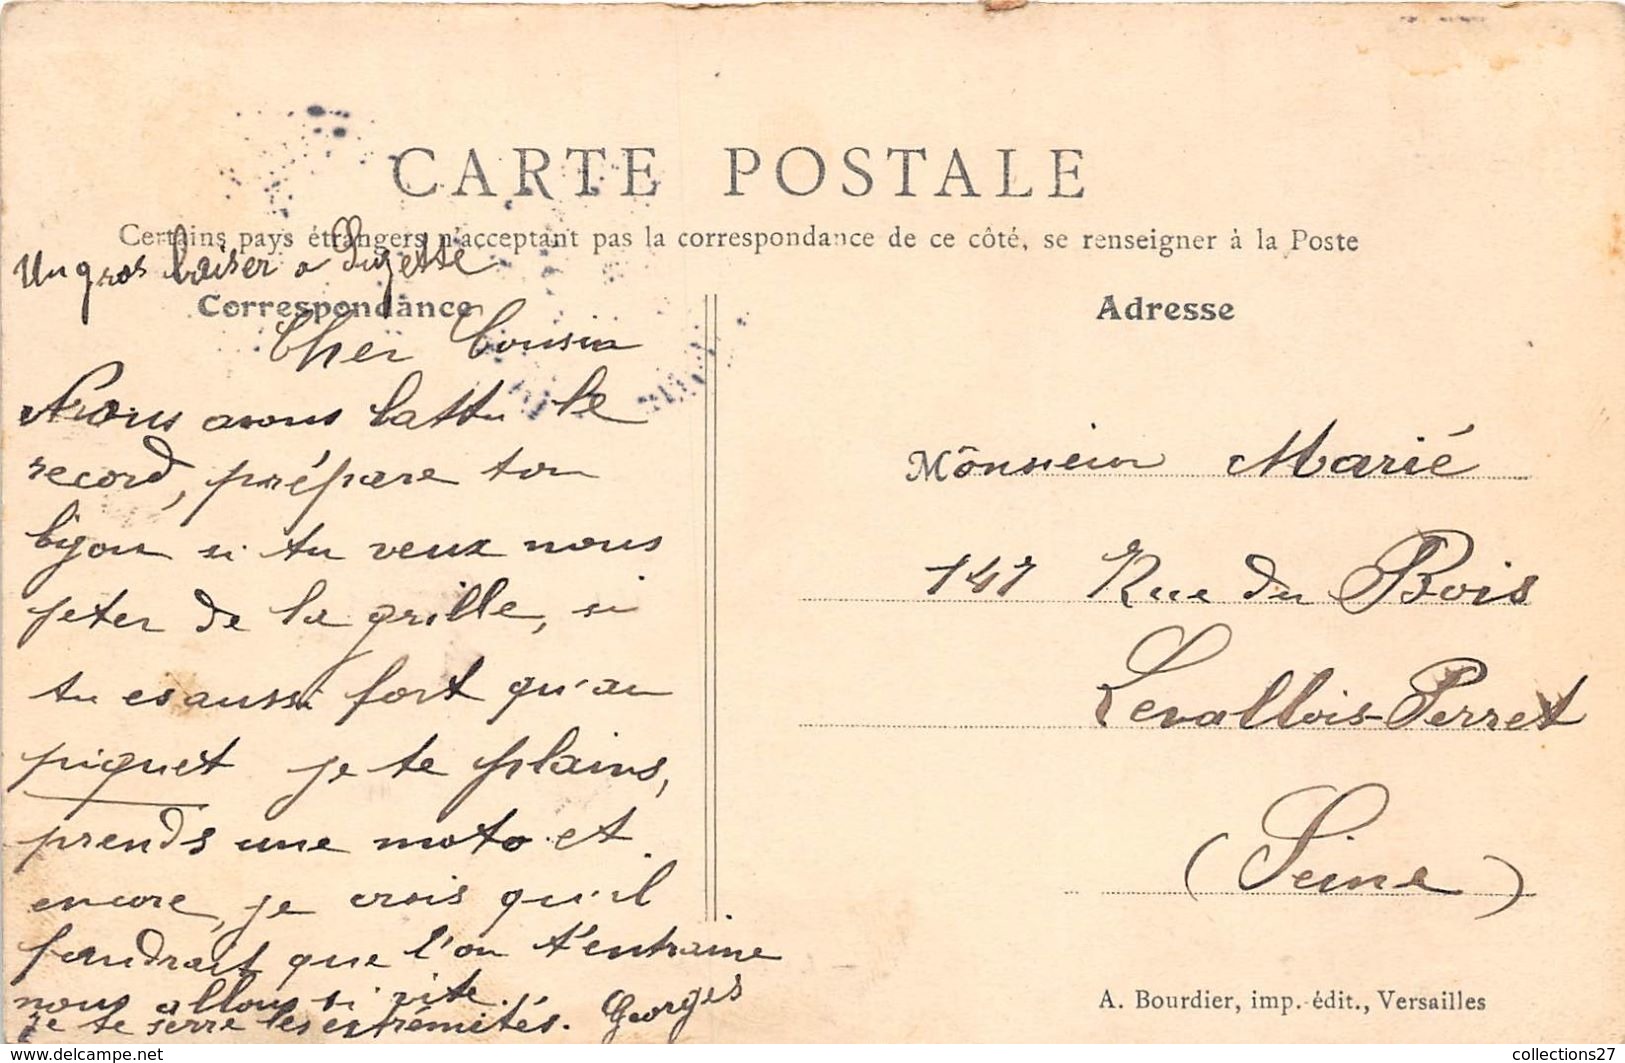 CARTE POSTALE
Certains pays étrangers n'acceptant pas la correspondance de ce côté, se renseigner à la Poste
Un gros baiser a Suzette
Correspondance
Cher Cousin
Nous avons battu le
record, prépare ton
bijou si tu veux nous
jeter de la grille, si
tu es aussi fort qu'au
piquet je te plains,
prends une moto et
encore, je crois qu'il
faudrait que l'on t'entraine
nous allons si vite.
je te serre les extrémités. Georges
Adresse
Monsieur Marié
141 Rue du Bois
Levallois-Perret
(Seine)
A. Bourdier, imp.-édit., Versailles
collections27